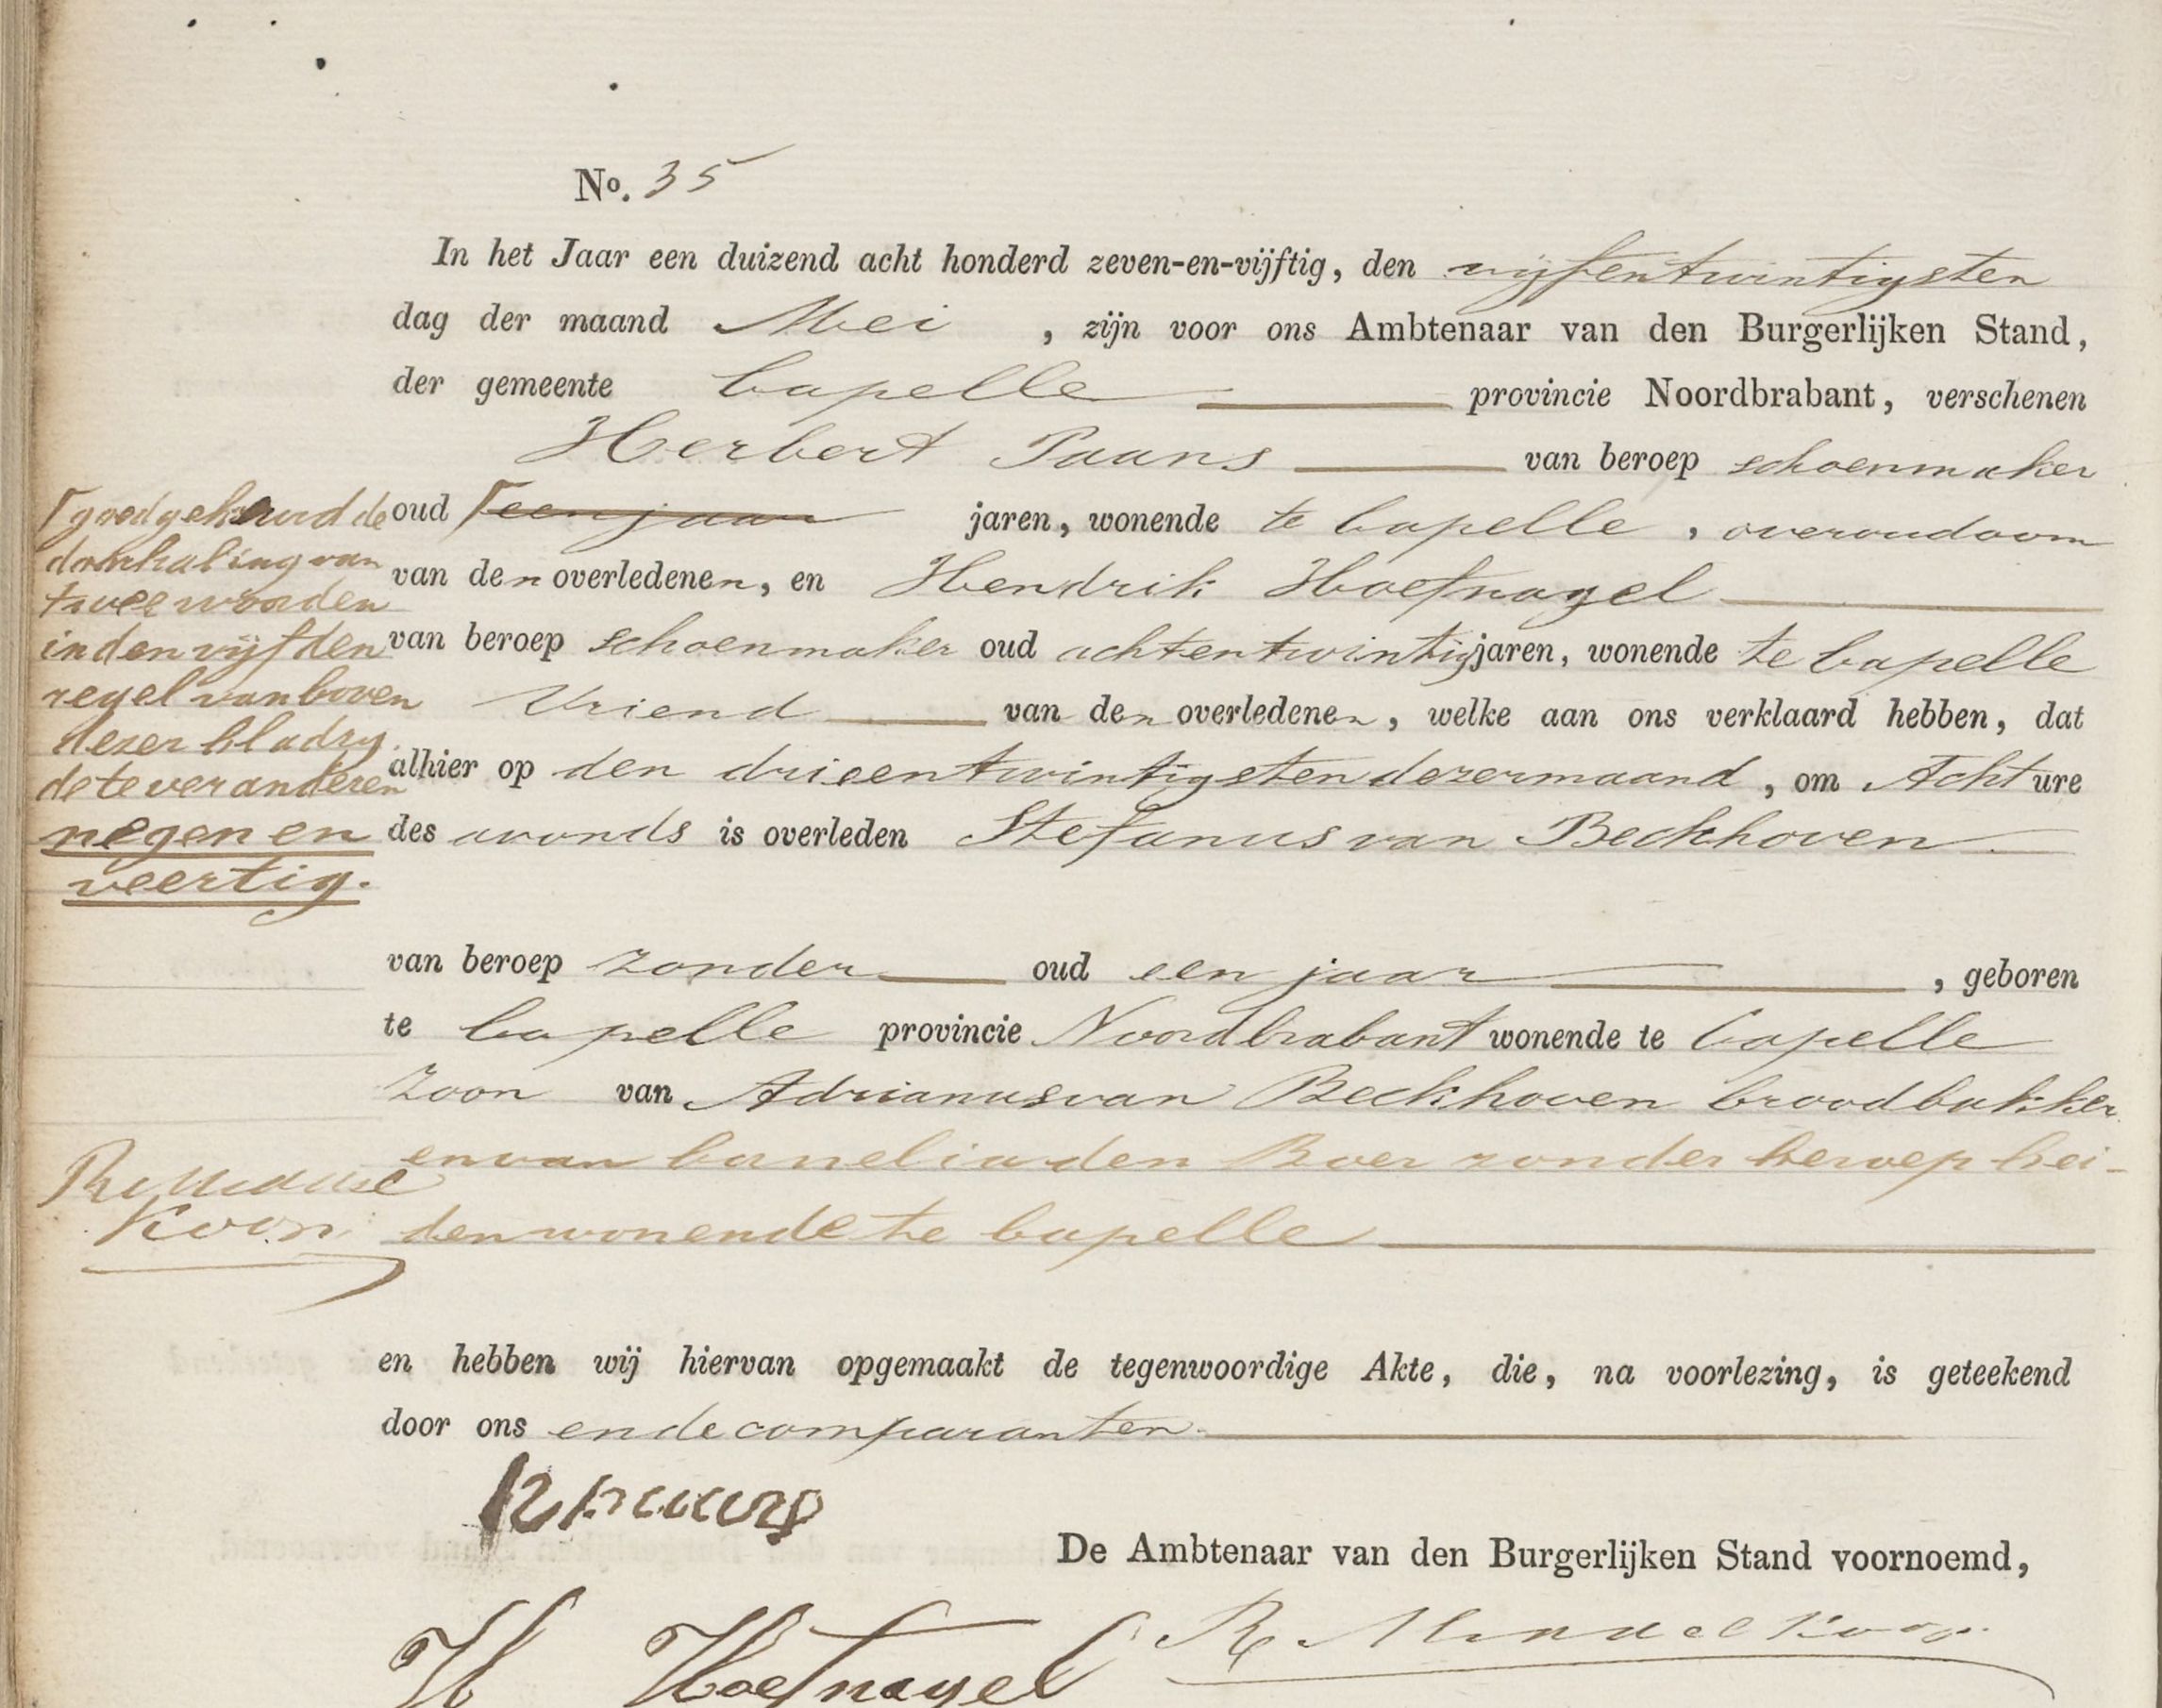 No. 35
In het Jaar een duizend acht honderd zeven-en-vijftig, den vijfentwintigsten
dag der maand Mei , zijn voor ons Ambtenaar van den Burgerlijken Stand,
der gemeente Capelle provincie Noordbrabant, verschenen
Herbert Paans van beroep schoenmaker
oud een jaar jaren, wonende te Capelle , overoudoom
van den overledenen, en Hendrik Hoefnagel
van beroep schoenmaker oud achtentwintig jaren, wonende te Capelle
Vriend van den overledenen, welke aan ons verklaard hebben, dat
alhier op den drieentwintigsten dezer maand , om Acht ure
des avonds is overleden Stefanus van Beckhoven
van beroep zonder oud een jaar , geboren
te Capelle provincie Noordbrabant wonende te Capelle
zoon van Adrianus van Beckhoven broodbakker
en van Cornelia den Boer zonder beroep bei-
den wonende te Capelle
en hebben wij hiervan opgemaakt de tegenwoordige Akte, die, na voorlezing, is geteekend
door ons en de comparanten
De Ambtenaar van den Burgerlijken Stand voornoemd,
H Hoefnagel
goedgekeurd de
doorhaling van
twee woorden
in den vijfden
regel van boven
dezer bladzy.
de te veranderen
negen en
veertig.